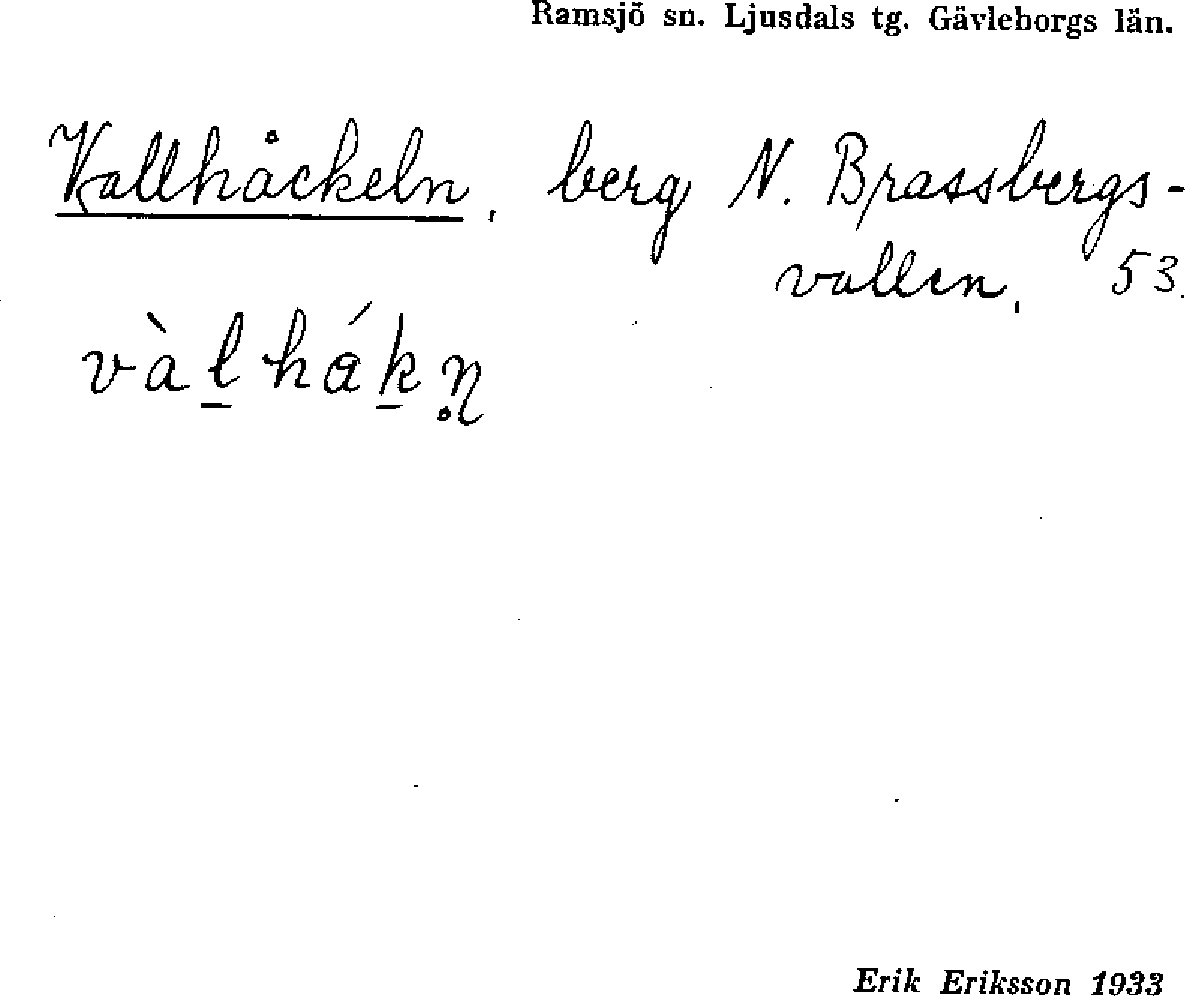 Ramsjö sn. Ljusdals tg. Gävleborgs län.
Vallhåckeln, berg N. Brassbergs-
vallen, 53.
vàl̲hák̲n̥
Erik Eriksson 1933